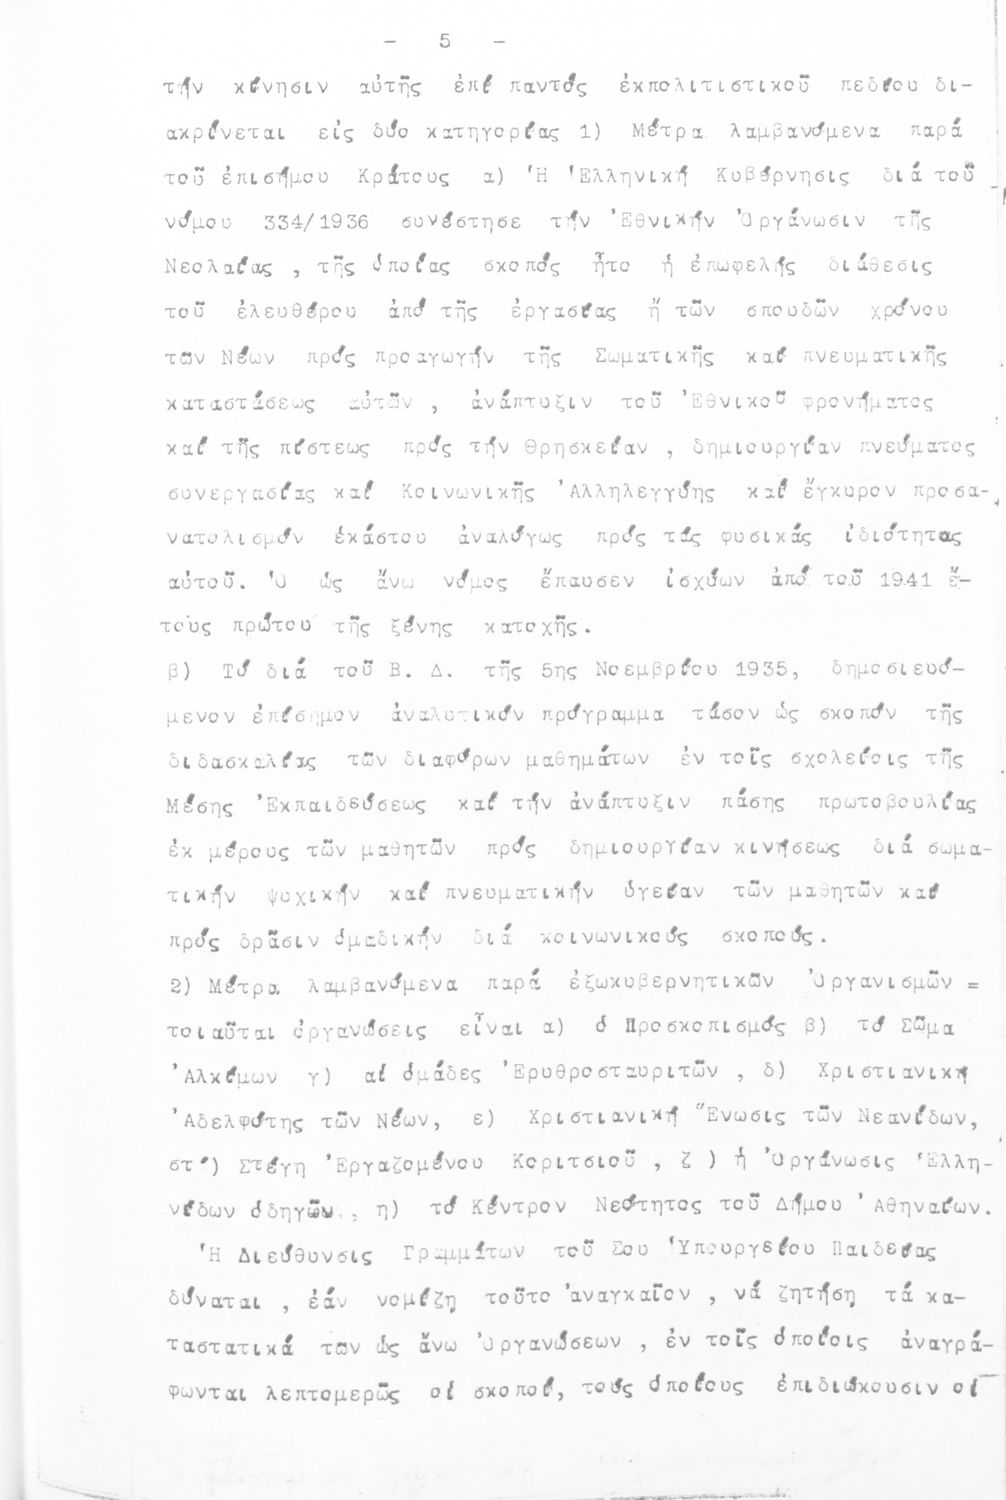 - 5 -
τήν κίνησιν αὐτῆς ἐπί παντός ἐκπολιτιστικοῦ πεδίου δι-
ακρίνεται εἰς δύο κατηγορίας 1) Μέτρα λαμβανόμενα παρά
τοῦ ἐπισήμου Κράτους α) Ἡ Ἑλληνική Κυβέρνησις διά τοῦ
νόμου 334/1936 συνέστησε τήν Ἐθνικήν Ὀργάνωσιν τῆς
Νεολαίας , τῆς ὁποίας σκοπός ἦτο ἡ ἐπωφελής διάθεσις
τοῦ ἐλευθέρου ἀπό τῆς ἐργασίας ἤ τῶν σπουδῶν χρόνου
τῶν Νέων πρός προαγωγήν τῆς Σωματικῆς καί πνευματικῆς
καταστάσεως αὐτῶν , ἀνάπτυξιν τοῦ Ἐθνικοῦ φρονήματος
καί τῆς πίστεως πρός τήν θρησκείαν , δημιουργίαν πνεύματος
συνεργασίας καί Κοινωνικῆς Ἀλληλεγγύης καί ἔγκυρον προσα-
νατολισμόν ἑκάστου ἀναλόγως πρός τάς φυσικάς ἰδιότητας
αὐτοῦ. Ὁ ὡς ἄνω νόμος ἔπαυσεν ἰσχύων ἀπό τοῦ 1941 ἔ-
τους πρώτου τῆς ξένης κατοχῆς.
β) Τό διά τοῦ Β. Δ. τῆς 5ης Νοεμβρίου 1935, δημοσιευό-
μενον ἐπίσημον ἀναλυτικόν πρόγραμμα τάσον ὡς σκοπόν τῆς
διδασκαλίας τῶν διαφόρων μαθημάτων ἐν τοῖς σχολείοις τῆς
Μέσης Ἐκπαιδεύσεως καί τήν ἀνάπτυξιν πάσης πρωτοβουλίας
ἐκ μέρους τῶν μαθητῶν πρός δημιουργίαν κινήσεως διά σωμα-
τικήν ψυχικήν καί πνευματικήν ὑγείαν τῶν μαθητῶν καί
πρός δρᾶσιν ὁμαδικήν διά κοινωνικούς σκοπούς.
2) Μέτρα λαμβανόμενα παρά ἐξωκυβερνητικῶν Ὀργανισμῶν =
τοιαῦται ὀργανώσεις εἶναι α) ὁ Προσκοπισμός β) τό Σῶμα
Ἀλκίμων γ) αἱ ὁμάδες Ἐρυθροσταυριτῶν , δ) Χριστιανική
Ἀδελφότης τῶν Νέων, ε) Χριστιανική Ἕνωσις τῶν Νεανίδων,
στ') Στέγη Ἐργαζομένου Κοριτσιοῦ , ζ ) ἡ Ὀργάνωσις Ἑλλη-
νίδων ὁδηγῶν , η) τό Κέντρον Νεότητος τοῦ Δήμου Ἀθηναίων.
Ἡ Διεύθυνσις Γραμμάτων τοῦ Σου Ὑπουργείου Παιδείας
δύναται , ἐάν νομίζη τοῦτο ἀναγκαῖον , νά ζητήση τά κα-
ταστατικά των ὡς ἄνω Ὀργανώσεων , ἐν τοῖς ὁποίοις ἀναγρά-
φωνται λεπτομερῶς οἱ σκοποί, τούς ὁποίους ἐπιδιώκουσιν οἱ